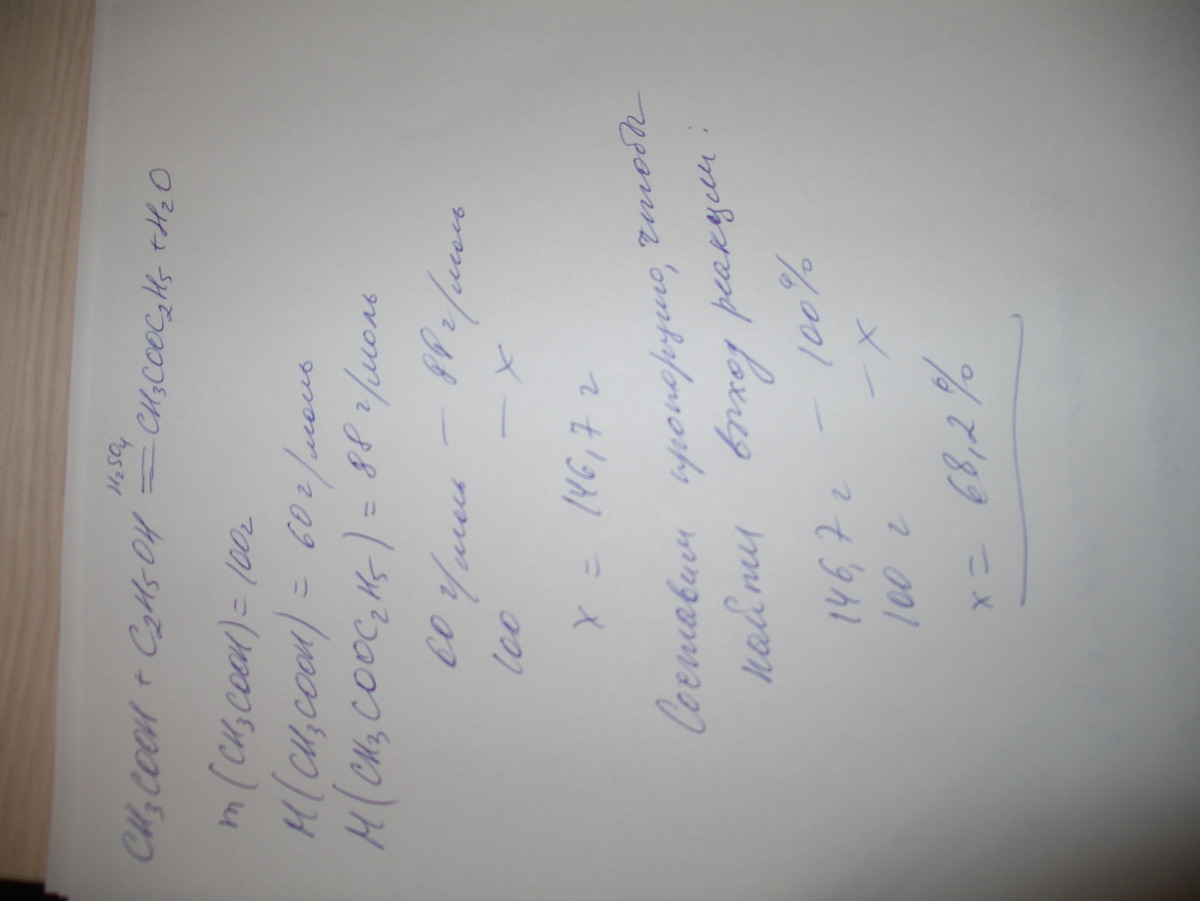 H₂SO₄
CH₃COOH + C₂H₅OH = CH₃COOC₂H₅ + H₂O
m(CH₃COOH) = 100г
M(CH₃COOH) = 60 г/моль
M(CH₃COOC₂H₅) = 88 г/моль
60 г/моль – 88 г/моль
100 – x
x = 146,7 г
Составим пропорцию, чтобы
найти выход реакции:
146,7 г – 100%
100 г – x
x = 68,2%